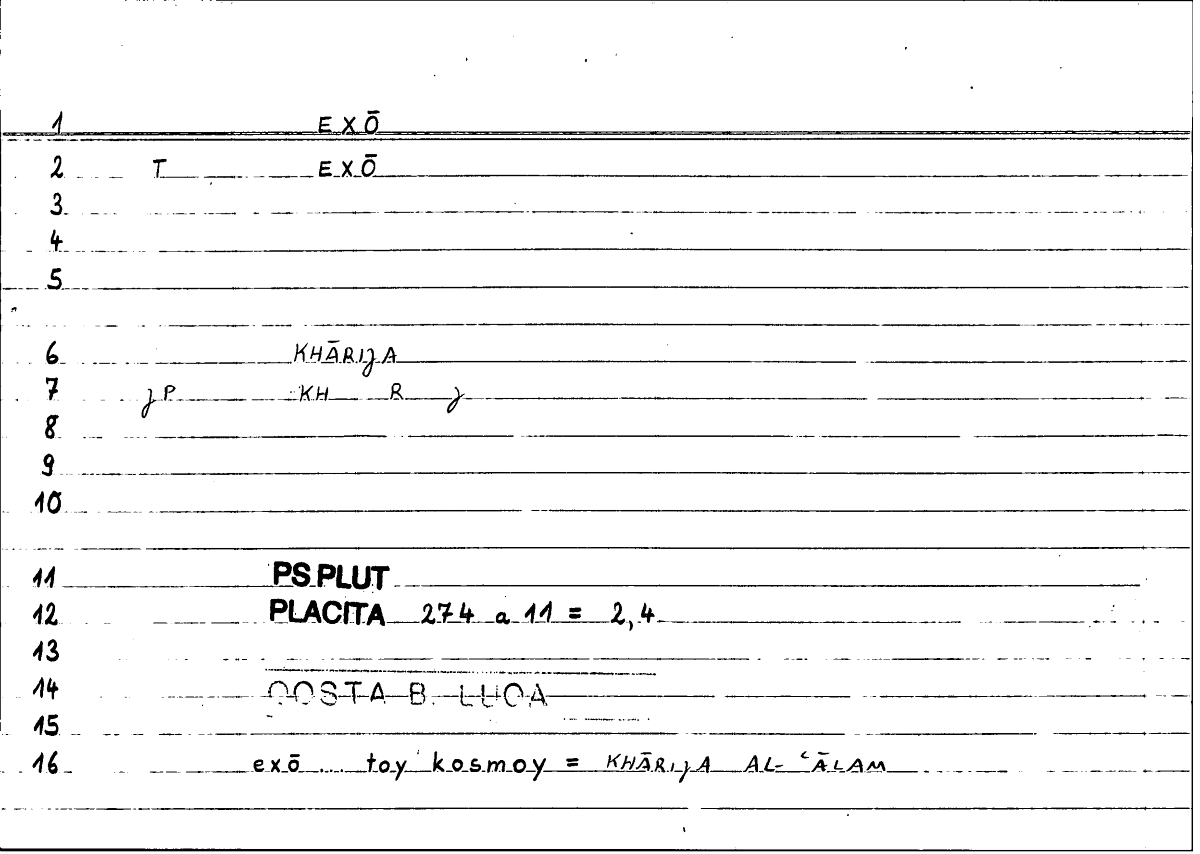 1 EXŌ
2 T EXŌ
3
4
5
6 KHĀRIJA
7 JP KH R J
8
9
10
11 PS.PLUT
12 PLACITA 274 a 11 = 2,4
13
14 QOSTA B. LUQA
15
16 exō ... toy kosmoy = KHĀRIJA AL-ʿĀLAM